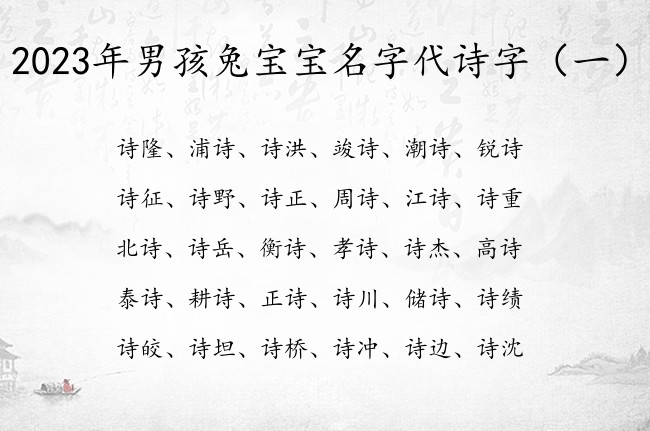 2023年男孩兔宝宝名字代诗字（一）
诗隆、浦诗、诗洪、竣诗、潮诗、锐诗
诗征、诗野、诗正、周诗、江诗、诗重
北诗、诗岳、衡诗、孝诗、诗杰、高诗
泰诗、耕诗、正诗、诗川、储诗、诗绩
诗皎、诗坦、诗桥、诗冲、诗边、诗沈